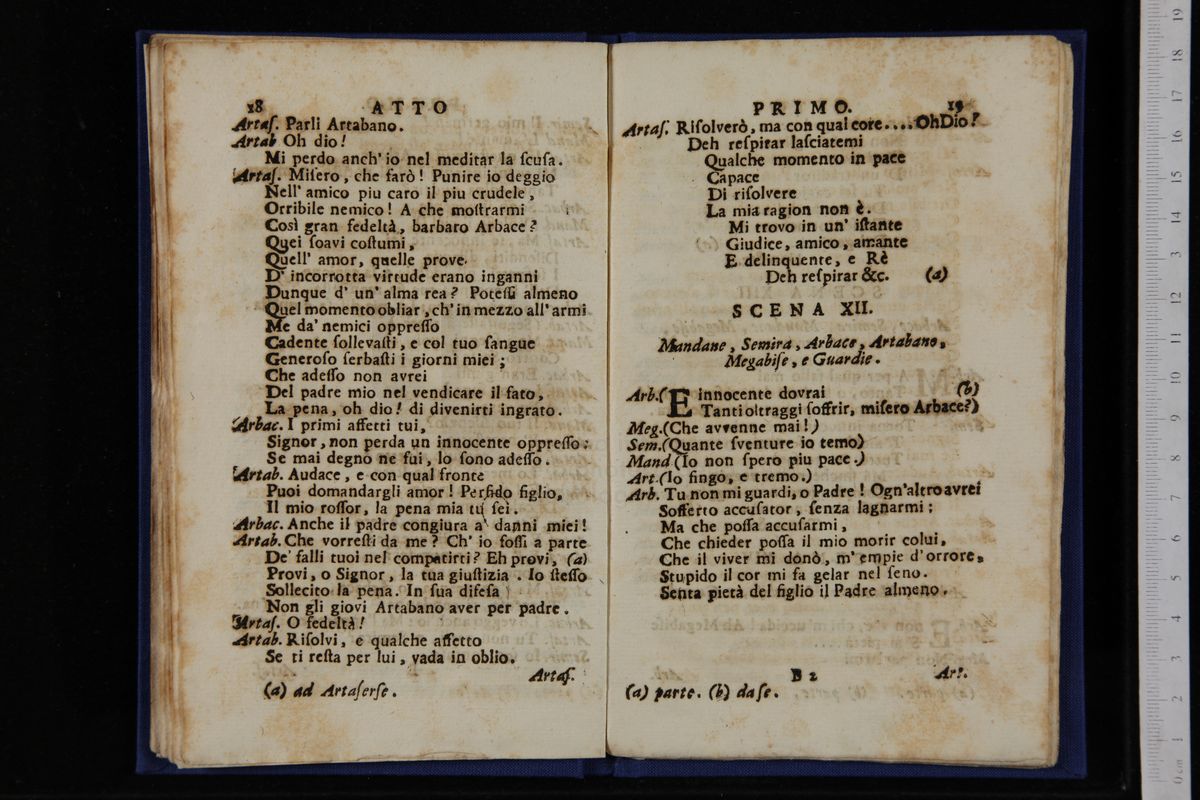 18 ATTO
Artaſ. Parli Artabano.
Artab Oh dio!
Mi perdo anch' io nel meditar la ſcuſa.
Artaſ. Miſero, che farò! Punire io deggio
Nell' amico piu caro il piu crudele,
Orribile nemico! A che moſtrarmi
Così gran fedeltà, barbaro Arbace?
Quei ſoavi coſtumi,
Quell' amor, quelle prove
D' incorrotta virtude erano inganni
Dunque d' un' alma rea? Poteſſi almeno
Quel momento obliar, ch' in mezzo all' armi
Me da' nemici oppreſſo
Cadente ſollevaſti, e col tuo ſangue
Generoſo ſerbaſti i giorni miei;
Che adeſſo non avrei
Del padre mio nel vendicare il fato,
La pena, oh dio! di divenirti ingrato.
Arbac. I primi affetti tui,
Signor, non perda un innocente oppreſſo:
Se mai degno ne fui, lo ſono adeſſo.
Artab. Audace, e con qual fronte
Puoi domandargli amor! Perfido figlio,
Il mio roſſor, la pena mia tu ſei.
Arbac. Anche il padre congiura a' danni miei!
Artab. Che vorreſti da me? Ch' io foſſi a parte
De' falli tuoi nel compatirti? Eh provi, (a)
Provi, o Signor, la tua giuſtizia. Io ſteſſo
Sollecito la pena. In ſua difeſa
Non gli giovi Artabano aver per padre.
Artaſ. O fedeltà!
Artab. Riſolvi, e qualche affetto
Se ti reſta per lui, vada in oblio.
Artaſ.
(a) ad Artaſerſe.
PRIMO. 19
Artaſ. Riſolverò, ma con qual core.... Oh Dio!
Deh reſpirar laſciatemi
Qualche momento in pace
Capace
Di riſolvere
La mia ragion non è.
Mi trovo in un' iſtante
Giudice, amico, amante
E delinquente, e Rè
Deh reſpirar &c. (a)
SCENA XII.
Mandane, Semira, Arbace, Artabano,
Megabiſe, e Guardie.
Arb. (E innocente dovrai (b)
Tanti oltraggi ſoffrir, miſero Arbace?)
Meg. (Che avvenne mai!)
Sem. (Quante ſventure io temo)
Mand. (Io non ſpero piu pace.)
Art. (Io fingo, e tremo.)
Arb. Tu non mi guardi, o Padre! Ogn' altro avrei
Sofferto accuſator, ſenza lagnarmi:
Ma che poſſa accuſarmi,
Che chieder poſſa il mio morir colui,
Che il viver mi donò, m' empie d' orrore,
Stupido il cor mi fa gelar nel ſeno.
Senta pietà del figlio il Padre almeno.
B 2 Art.
(a) parte. (b) da ſe.